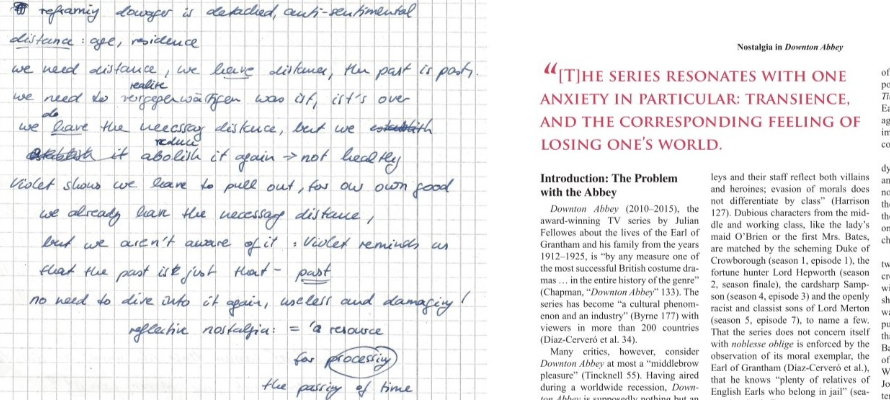 reframing dowager is detached, anti-sentimental
distance: age, residence
we need distance, we have distance, the past is past.
realise
we need to vergegenwärtigen was ist, ist's over
do
we have the necessary distance, but we establish
reduce
establish it abolish it again → not healthy
Violet shows we have to pull out, for our own good
we already have the necessary distance,
but we aren't aware of it: Violet reminds us
that the past is just that - past
no need to dive into it again, useless and damaging!
reflective nostalgia: = 'a resource
for processing
the passing of time
Nostalgia in Downton Abbey
"[T]HE SERIES RESONATES WITH ONE
ANXIETY IN PARTICULAR: TRANSIENCE,
AND THE CORRESPONDING FEELING OF
LOSING ONE'S WORLD.
Introduction: The Problem
with the Abbey
Downton Abbey (2010–2015), the
award-winning TV series by Julian
Fellowes about the lives of the Earl of
Grantham and his family from the years
1912–1925, is "by any measure one of
the most successful British costume dra-
mas … in the entire history of the genre"
(Chapman, "Downton Abbey" 133). The
series has become "a cultural phenom-
enon and an industry" (Byrne 177) with
viewers in more than 200 countries
(Díaz-Cerveró et al. 34).
Many critics, however, consider
Downton Abbey at most a "middlebrow
pleasure" (Tincknell 55). Having aired
during a worldwide recession, Down-
ton Abbey is supposedly nothing but an
leys and their staff reflect both villains
and heroines; evasion of morals does
not differentiate by class" (Harrison
127). Dubious characters from the mid-
dle and working class, like the lady's
maid O'Brien or the first Mrs. Bates,
are matched by the scheming Duke of
Crowborough (season 1, episode 1), the
fortune hunter Lord Hepworth (season
2, season finale), the cardsharp Samp-
son (season 4, episode 3) and the openly
racist and classist sons of Lord Merton
(season 5, episode 7), to name a few.
That the series does not concern itself
with noblesse oblige is enforced by the
observation of its moral exemplar, the
Earl of Grantham (Díaz-Cerveró et al.),
that he knows "plenty of relatives of
English Earls who belong in jail" (sea-